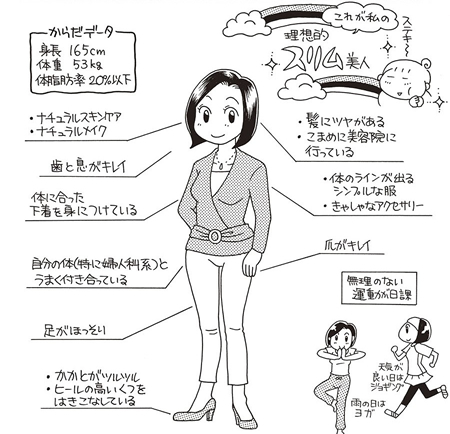 からだデータ
身長 165cm
体重 53kg
体脂肪率 20%以下
これが私の
理想的
スリム美人
ステキー
・ナチュラルスキンケア
・ナチュラルメイク
歯と息がキレイ
体に合った
下着を身につけている
自分の体(特に婦人科系)と
うまく付き合っている
足がほっそり
・かかとがツルツル
・ヒールの高いくつを
はきこなしている
・髪にツヤがある
・こまめに美容院に
行っている
・体のラインが出る
シンプルな服
・きゃしゃなアクセサリー
爪がキレイ
無理のない
運動が日課
天気が
良い日は
ジョギング
雨の日は
ヨガ